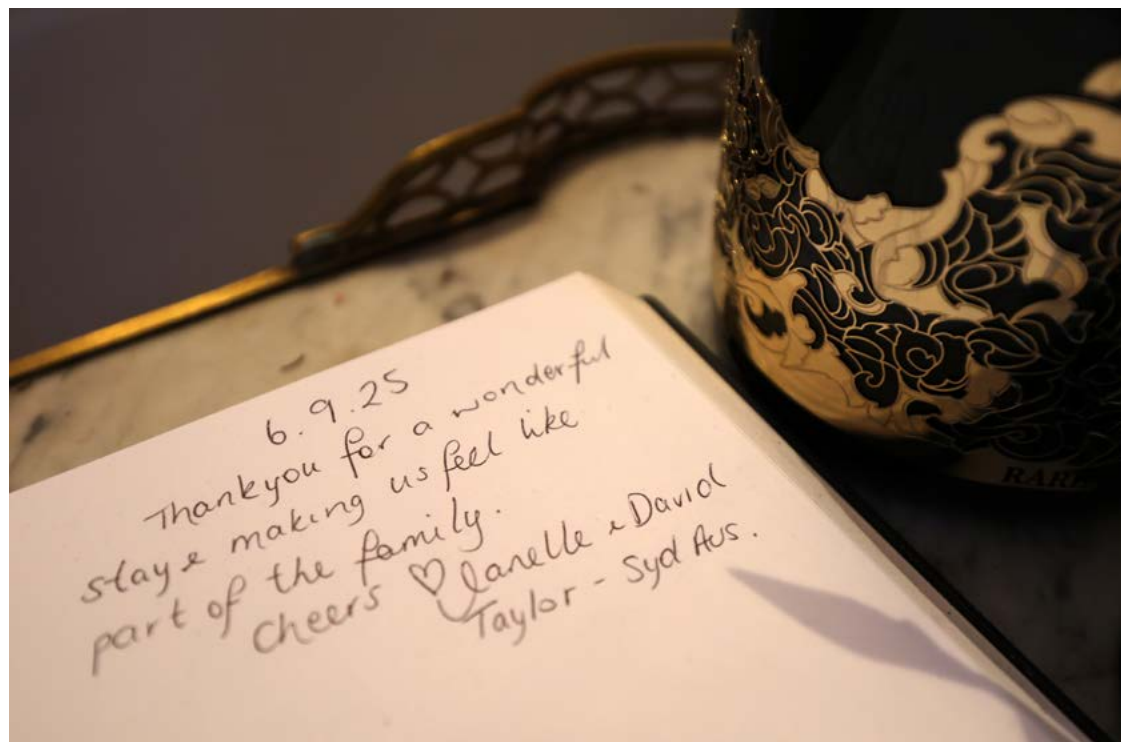 6.9.25
Thankyou for a wonderful
stay & making us feel like
part of the family.
Cheers ♡ Janelle & David
Taylor - Syd Aus.
RARE